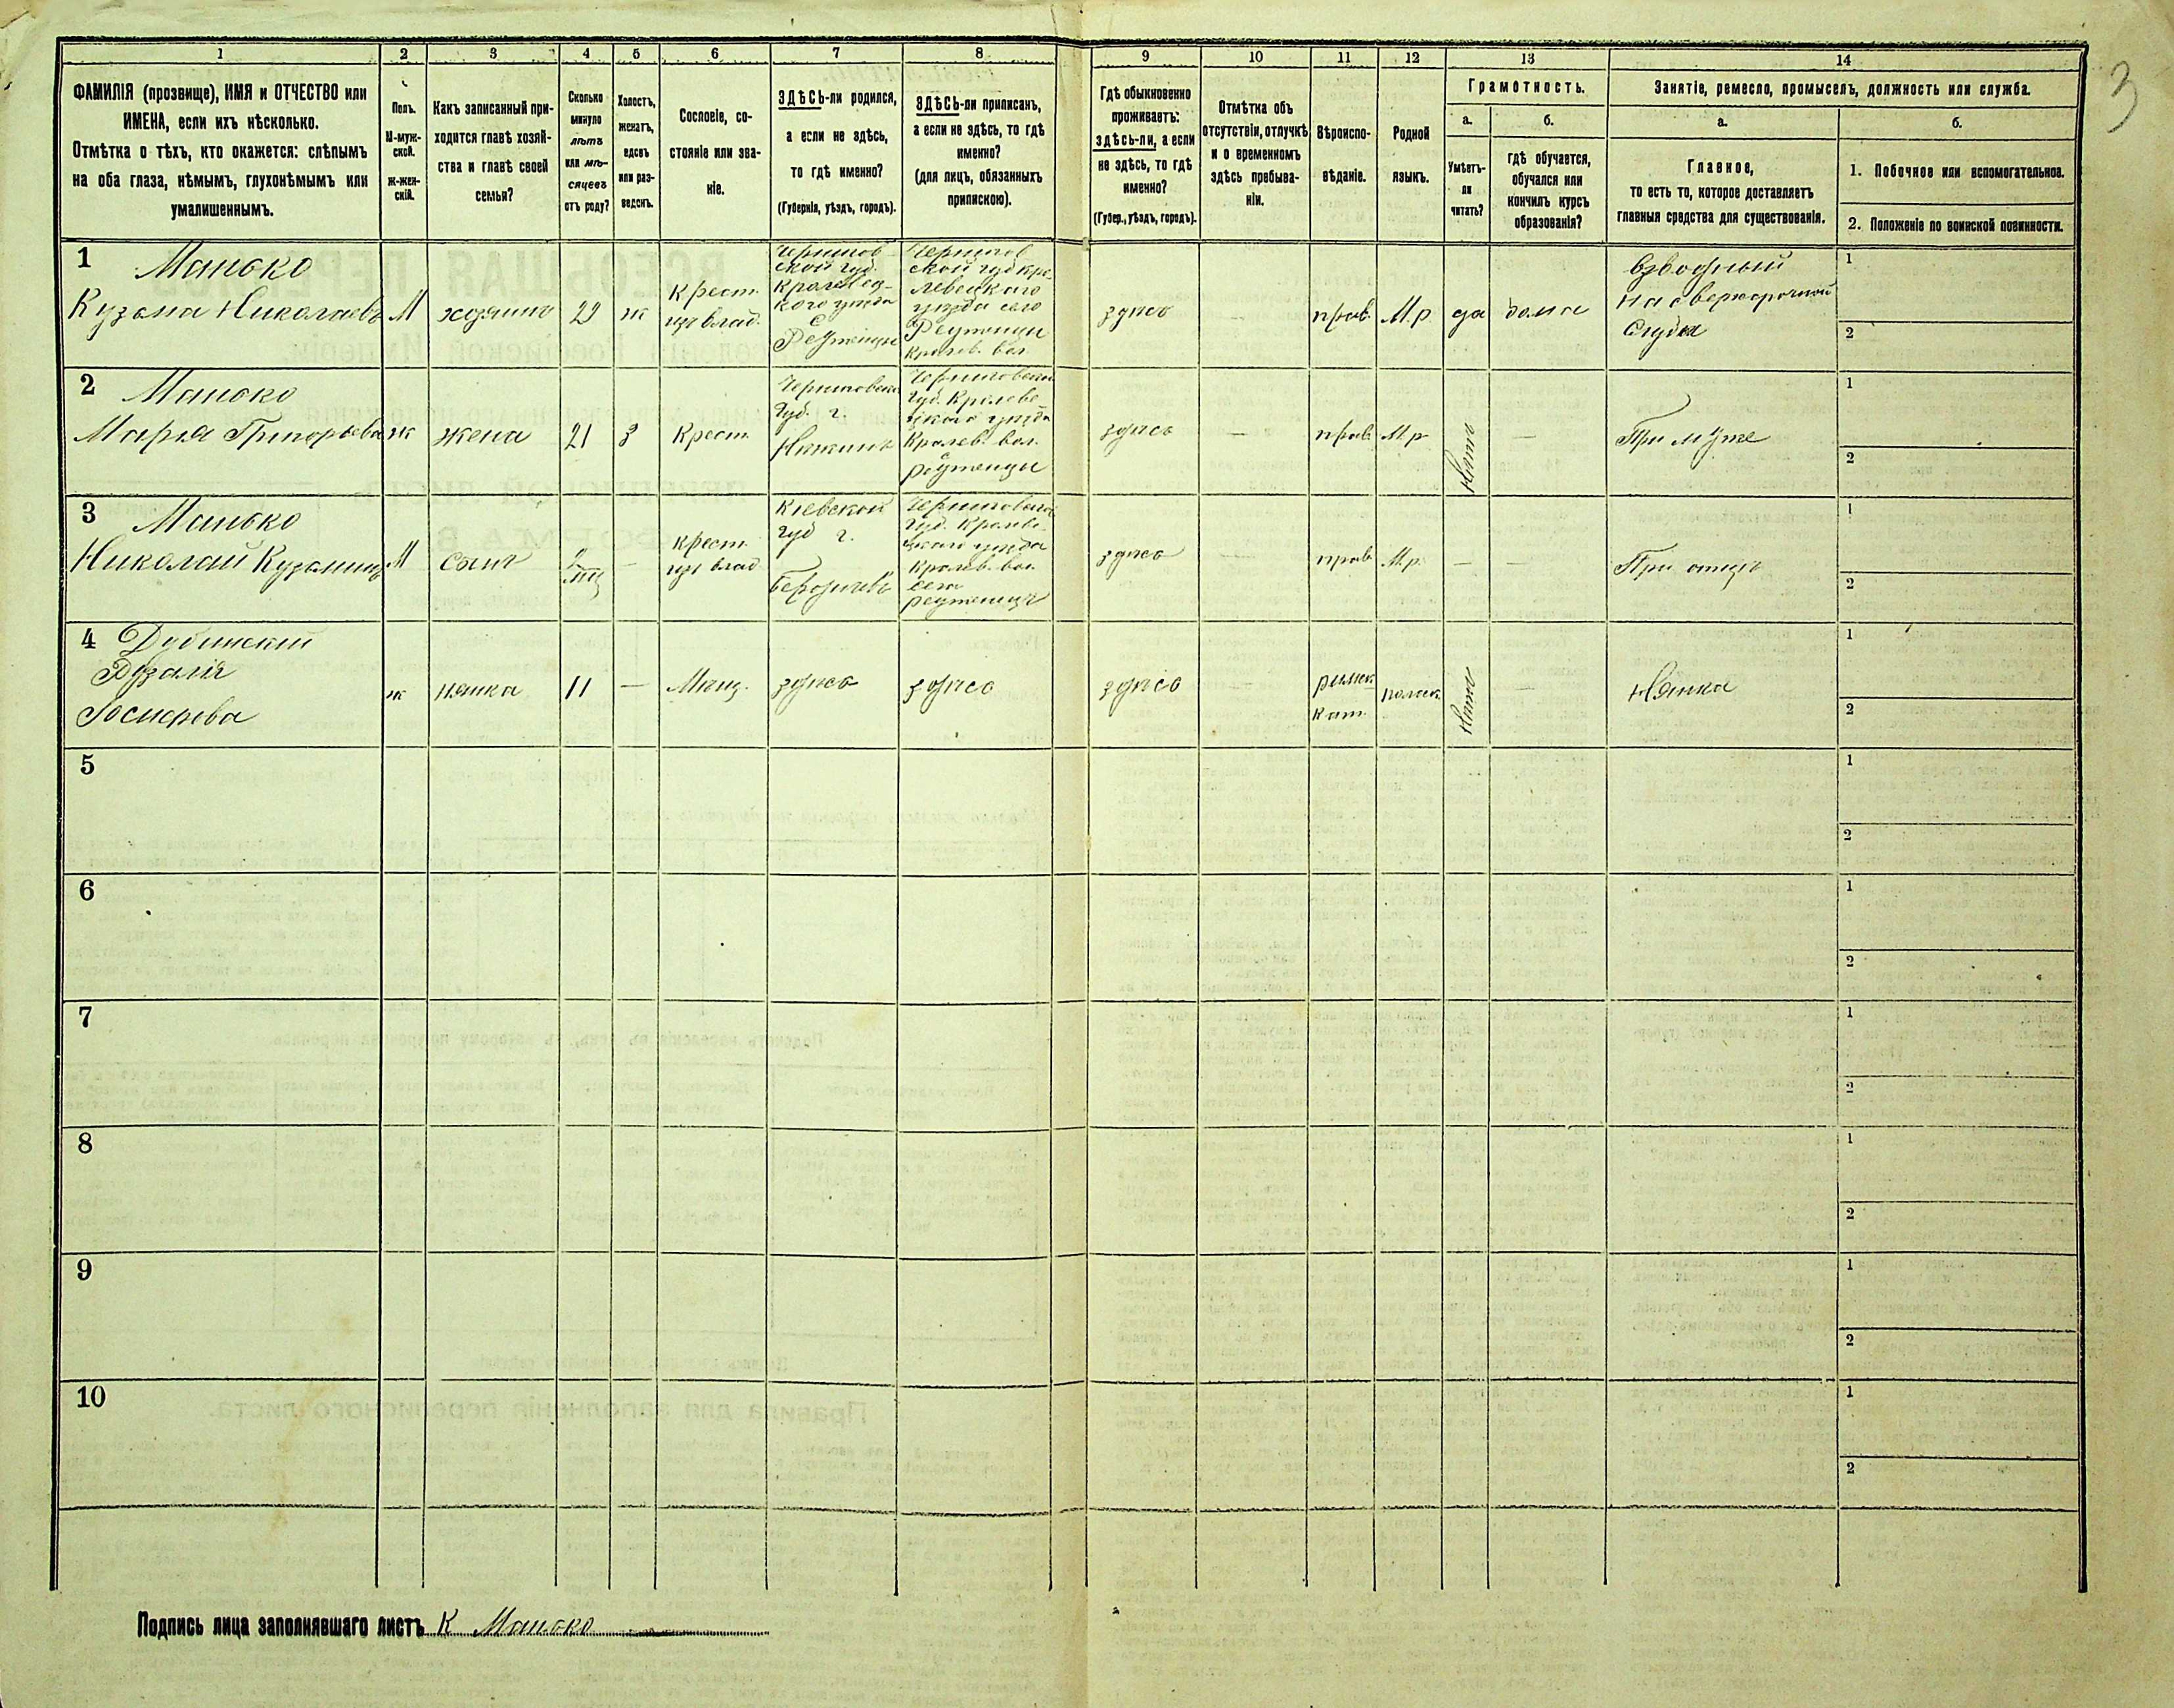 1
2
3
4
5
6
7
8
9
10
11
12
13
14
ФАМИЛІЯ (прозвище), ИМЯ и ОТЧЕСТВО или
ИМЕНА, если ихъ нѣсколько.
Отмѣтка о тѣхъ, кто окажется: слѣпымъ
на оба глаза, нѣмымъ, глухонѣмымъ или
умалишеннымъ.
Полъ.
М-муж-
ской.
Ж-жен-
скій.
Какъ записанный при-
ходится главѣ хозяй-
ства и главѣ своей
семьи?
Сколько
минуло
лѣтъ
или мѣ-
сяцевъ
отъ роду?
Холостъ,
женатъ,
вдовъ
или раз-
веденъ.
Сословіе, со-
стояніе или зва-
ніе.
ЗДѢСЬ-ли родился,
а если не здѣсь,
то гдѣ именно?
(Губернія, уѣздъ, городъ).
ЗДѢСЬ-ли приписанъ,
а если не здѣсь, то гдѣ
именно?
(для лицъ, обязанныхъ
припискою).
Гдѣ обыкновенно
проживаетъ:
здѣсь-ли, а если
не здѣсь, то гдѣ
именно?
(Губер., уѣздъ, городъ).
Отмѣтка объ
отсутствіи, отлучкѣ
и о временномъ
здѣсь пребыва-
ніи.
Вѣроиспо-
вѣданіе.
Родной
языкъ.
Грамотность.
а.
Умѣетъ-
ли
читать?
б.
гдѣ обучается,
обучался или
кончилъ курсъ
образованія?
Занятіе, ремесло, промыселъ, должность или служба.
а.
Главное,
то есть то, которое доставляетъ
главныя средства для существованія.
б.
1. Побочное или вспомогательное.
2. Положеніе по воинской повинности.
1 Манько
Кузьма Николаевъ
М
хозяинъ
29
ж
Крест.
изъ влад.
Чернигов-
ской губ.
Кролевец-
кого уѣзда
с
Реутинцы
Чернигов
ской губ Кро
левецкаго
уѣзда село
Реутинцы
Кролев. вол
здѣсь
—
прав.
М.р.
да
дома
Взводный
на сверхсрочной
службѣ
1
2
2 Манько
Марья Григорьева
ж
жена
21
з
Крест.
Черниговской
Губ. г.
Нѣжинъ
Черниговской
Губ. Кролеве
цкаго уѣзда
Кролев. вол.
с
реутинцы
здѣсь
—
прав.
М.р
Нѣтъ
—
При мужѣ
1
2
3 Манько
Николай Кузьминъ
М
сынъ
мц
—
крест.
изъ влад
Кіевской
губ г.
Бердичевъ
Черниговской
Губ. Кролеве
цкаго уѣзда
Кролев. вол.
село
реутинцы
здѣсь
—
прав
М.р.
—
—
При отцѣ
1
2
4 Дубинский
Рузалія
ж
нянка
11
—
Мѣщ.
здѣсь
здѣсь
здѣсь
—
римск
кат.
польск
Нѣтъ
—
Нянка
1
2
5
1
2
6
1
2
7
1
2
8
1
2
9
1
2
10
1
2
Подпись лица заполнявшаго листъ К Манько
3